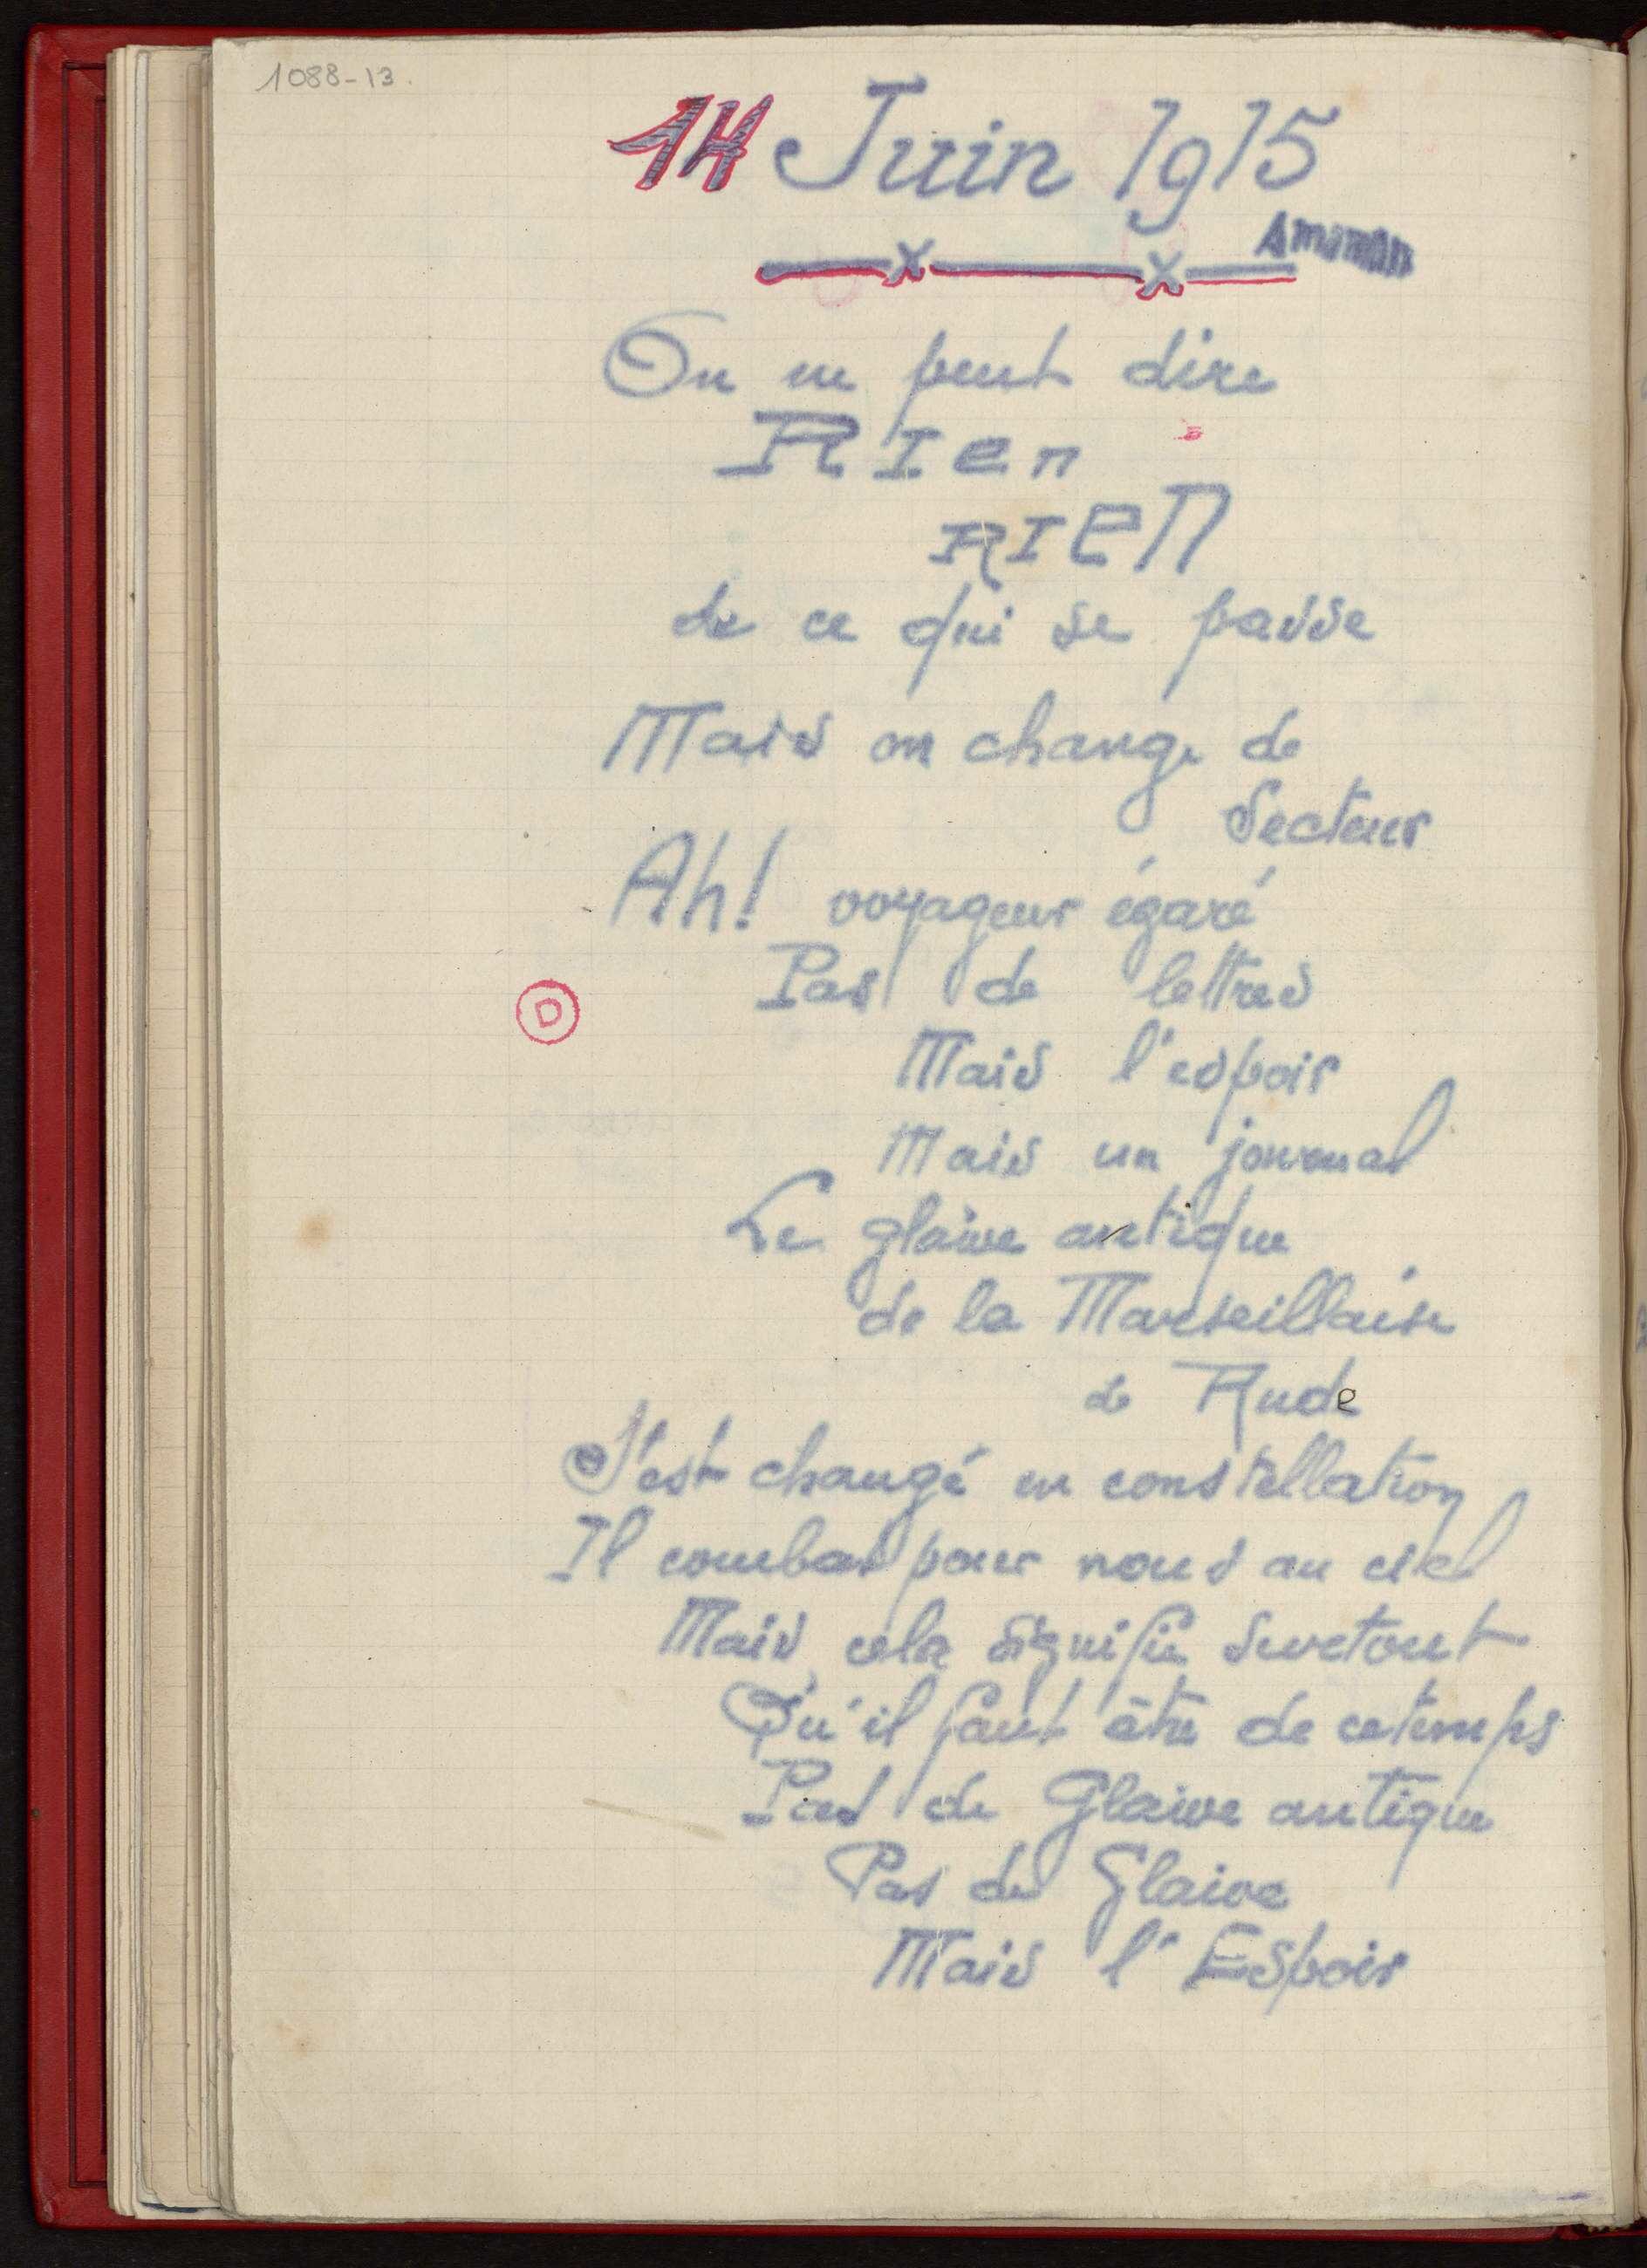 1088-13.
14 Juin 1915
On ne peut dire
RIen
RIEN
de ce qui se passe
Mais on change de
Secteur
Ah! voyageur égaré
Pas de lettres
D
Mais l'espoir
Mais un journal
Le glaive antique
de la Marseillaise
de Rude
S'est changé en constellation
Il combat pour nous au ciel
Mais cela signifie surtout
Qu'il faut être de ce temps
Pas de Glaive antique
Pas de Glaive
Mais l'Espoir